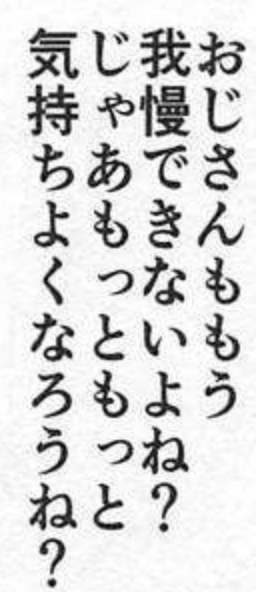 おじさんももう
我慢できないよね？
じゃあもっともっと
気持ちよくなろうね？